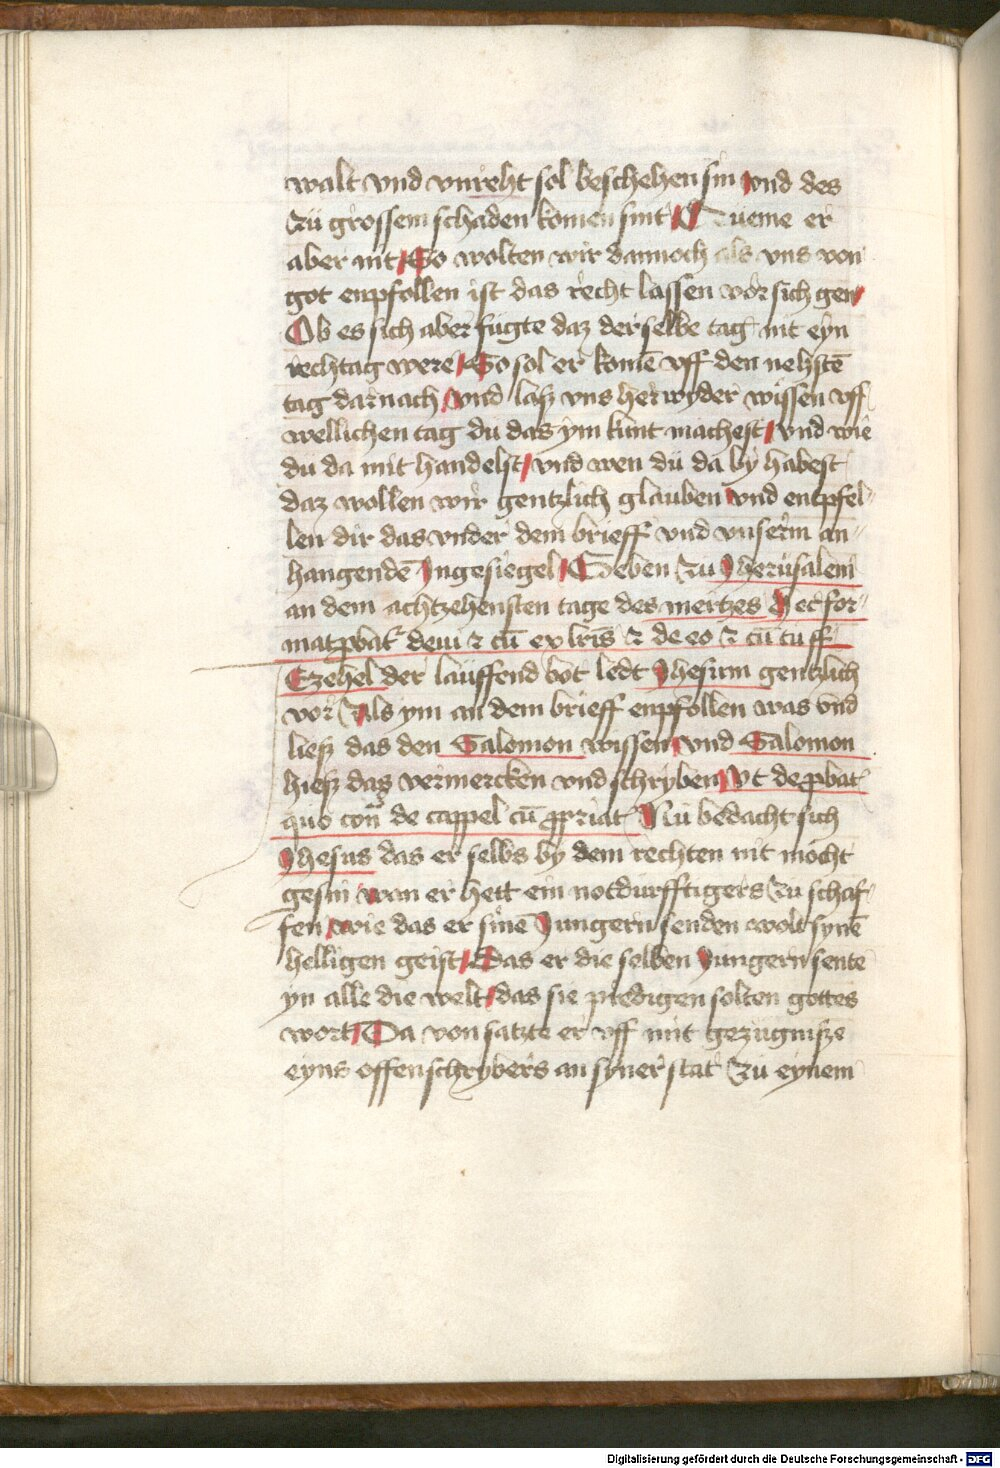 walt vnd vnreht sol beschehen sin vnd des
zü grossem schaden komen sint Tüeme er
aber nit So wolten wir dannoch als vns von
got enpfollen ist das recht lassen vor sich gen
Ob es sich aber fügte daz der selbe tag nit eyn
rechtag were So sol er komē vff den nehstē
tag darnach vnd laß vns her wyder wissen vff
wellichen tag du das ym kunt machest vnd wie
du da mit handelst vnd wen du da by habest
daz wollen wir gentzlich glauben vnd enpfel-
len dir das vnder dem brieff vnd vnserm an-
hangendē Ingesiegel Geben zu Jherusalem
an dem achtzehensten tage des mertzes Hec for-
mat ꝓbat᷑ de iu ⁊ cū ex lris ⁊ de eo ⁊ cū tu ff
Ezehel der lauffend bot ledt Jhesum gentzlich
vor Als ym an dem brieff enpfollen was vnd
ließ das den Salomon wissen vnd Salomon
hieß das vermercken vnd schryben Vt de ꝓbat
de cappel cū Nu bedacht sich
Jhesus das er selbs by dem rechten nit möcht
gesin wan er hett ein notdurfftigers zu schaf-
fen wie das er sinē Jungern senden wolt synē
helligen geist Das er die selben Jungern sente
yn alle die welt das sie predigen solten gottes
wort Da von satzte er vff mit gezügnisze
eyns offenschrybers an syner stat zü eynem
Digitalisierung gefördert durch die Deutsche Forschungsgemeinschaft - DFG